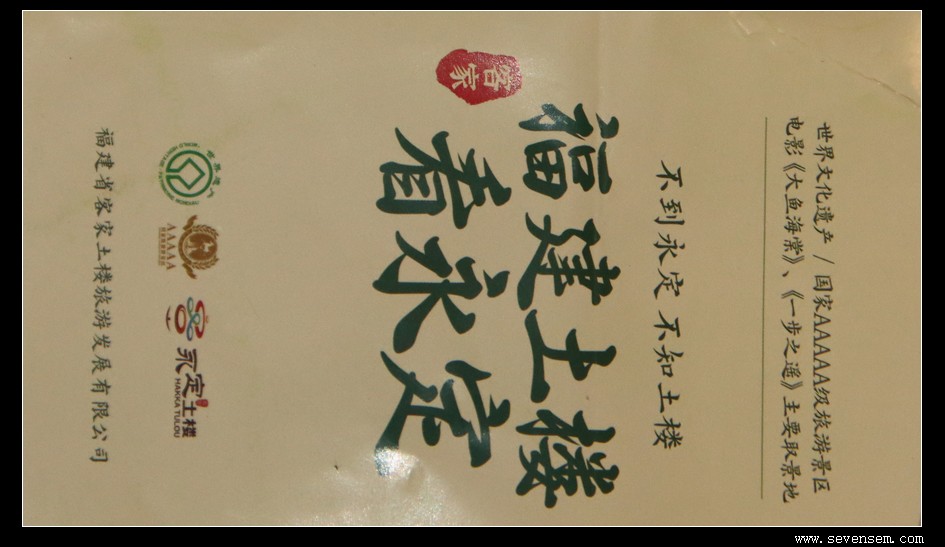 世界文化遗产 / 国家AAAAA级旅游景区
电影《大鱼海棠》、《一步之遥》主要取景地
不到永定不知土楼
福建土楼
客家
看永定
AAAAA
永定土楼
HAKKA TULOU
福建省客家土楼旅游发展有限公司
www.sevensem.com